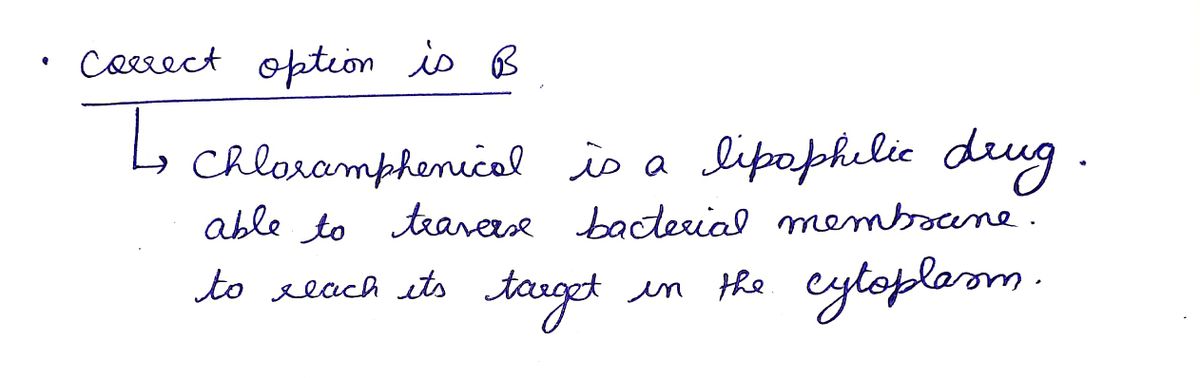 · Correct option is B
↳ Chloramphenicol is a lipophilic drug.
able to traverse bacterial membrane.
to reach its target in the cytoplasm.